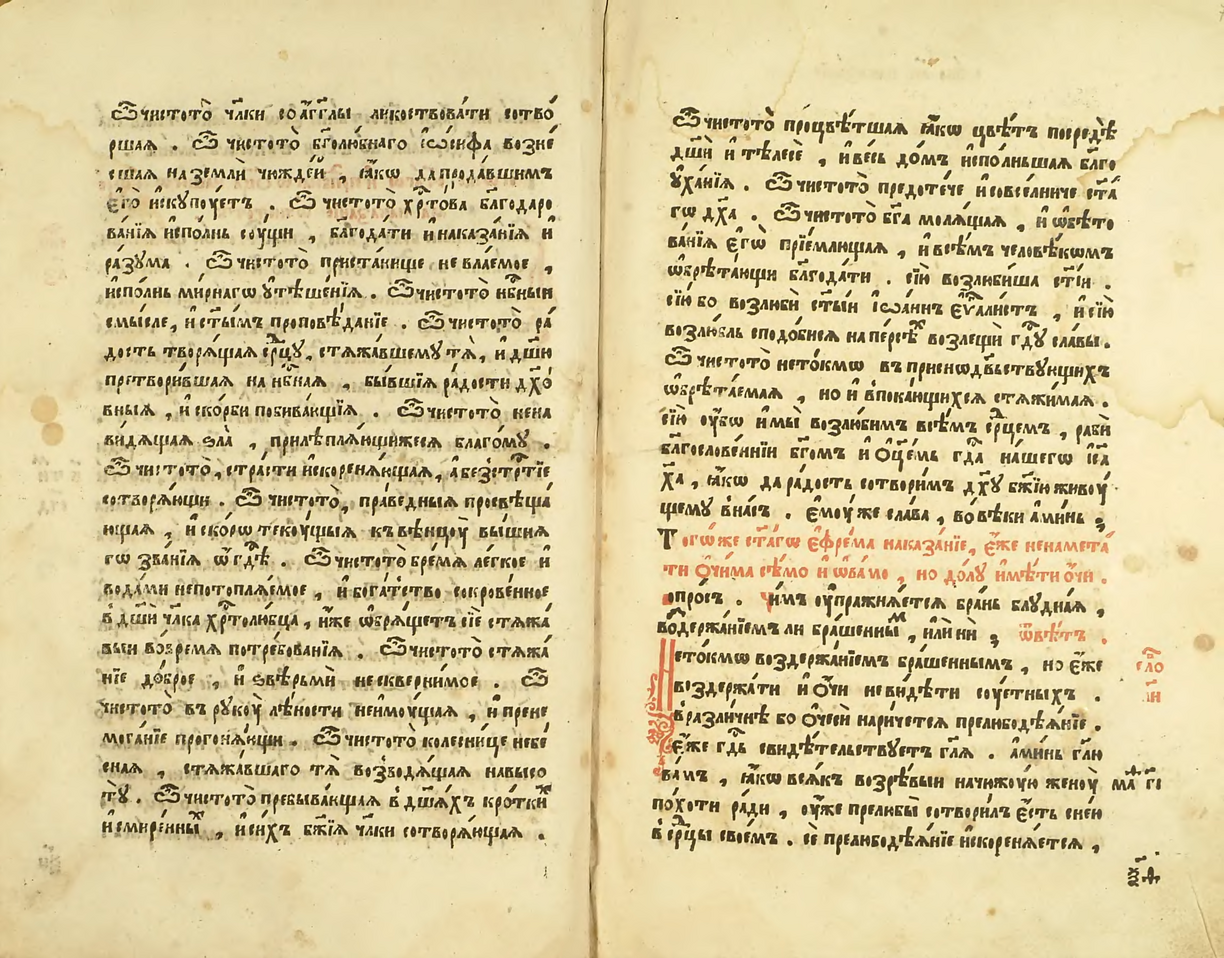 Ѽ чистото̀ чл҃ки со а҆́гг҃лы ликоствова́ти сотво́
ршаѧ . Ѽ чистото̀ бг҃олюбнаго і҆ѡсифа возне
сшаѧ на землѝ чюжде́й , ꙗ҆́кѡ да прода́вшимъ
є҆го̀ искупоуетъ . Ѽ чистото̀ хрⷭ҇това благодаро
ва́нїѧ и҆спо́лнь соущи , бл҃года́ти и҆ наказа́нїѧ и҆
ра́зума . Ѽ чистото̀ приста́нище не влаемое ,
и҆спо́лнь мирнагѡ ꙋ҆тѣше́нїѧ . Ѽ чистото̀ нбⷭ҇ныи
смысле, и҆ ст҃ымъ проповѣ́данїе . Ѽ чистото̀ ра́
дость творѧ́щаѧ срⷣцу, стѧжа́вшему тѧ̀, и҆ дш҃ю
претвори́вшаѧ на нбⷭ҇наѧ , бы́вшїѧ ра́дости дх҃о́
вныѧ , и҆ ско́рби погиба́ющїѧ . Ѽ чистото̀ нена
ви́дѧщаѧ ѕла̀ , прилѣплѧ́ющижесѧ благо́му .
Ѽ чистото̀, стра́сти и҆скоренѧ́ющаѧ, а҆ безстрⷭ҇тїе
сотворѧ́ющи . Ѽ чистото̀, пра́ведныѧ просвѣща́
ющаѧ , и҆ ско́рѡ текоущыѧ къ вѣнцоу̀ вы́шнѧ
гѡ зва́нїѧ ѡ҆ гдⷭ҇ѣ . Ѽ чистото̀ бре́мѧ ле́гкое и҆
вода́ми непотоплѧ́емое , и҆ бога́тство сокрове́нное
в дш҃и чл҃ка хрⷭ҇толюбца , и҆́же ѡ҆брѧщетъ сїѐ стѧжа́
выи во вре́мѧ потре́бованїѧ . Ѽ чистото̀ стѧжа́
нїе до́брое , и҆ ѕвѣрьмѝ неѡскверни́мое . Ѽ
чистото̀ въ рукоу̀ лѣ́ности неи́моущаѧ , и҆ прене
мога́нїе прогонѧ́ющи . Ѽ чистото̀ колесни́це небе́
снаѧ , стѧжа́вшаго тѧ̀ возводѧ́щаѧ на высо
тꙋ . Ѽ чистото̀ пребыва́ющаѧ в дш҃а́хъ кро́ткиⷯ
и҆ смире́нныⷯ , и҆ си́хъ бж҃їѧ чл҃ки сотворѧ́ющаѧ .
Ѽ чистото̀ процвѣ́тшаѧ ꙗ҆́кѡ цвѣ́тъ посредѣ̀
дш҃и и҆ тѣлесѐ , и҆ весь до́мъ и҆спо́лньшаѧ бл҃го
ꙋ҆ха́нїѧ . Ѽ чистото̀ предоте́че и҆ совсе́лниче ст҃а́
гѡ дх҃а . Ѽ чистото̀ бг҃а молѧ́щаѧ , и҆ ѡ҆бѣто
ва́нїѧ є҆гѡ̀ прїе́млющаѧ , и҆ всѣ́мъ человѣ́кѡмъ
ѡ҆брѣта́ющи бл҃года́ти . сїю̀ возлюби́ша ст҃і́и .
сїю́ бо возлюбѝ ст҃ы́и і҆ѡа́ннъ є҆ѵⷢ҇али́стъ , и҆ сїю̀
возлю́бль сподо́бисѧ на персѣⷯ возлещѝ гдⷭ҇ꙋ сла́вы.
Ѽ чистото̀ нето́кмѡ въ приснѡдвьствующихъ
ѡ҆брѣта́емаѧ , но и҆ в пока́ющихсѧ стѧжи́маѧ .
сїю̀ оу҆́бѡ и҆ мы̀ возлю́бимъ всѣ́мъ срⷣцемъ , рабѝ
бл҃гослове́ннїи бг҃омъ и҆ ѻ҆ц҃е́мь гдⷭ҇а на́шегѡ і҆с҃а
хⷭ҇а , ꙗ҆́кѡ да ра́дость сотвори́мъ дх҃ꙋ бж҃їю живоу
щемꙋ в на́съ . є҆моу́же сла́ва , во вѣ́ки а҆ми́нь ;
Тогѡ́же ст҃а́гѡ є҆фре́ма наказа́нїе, є҆́же ненамета́
ти ѻ҆чи́ма сѣ́мо и҆ ѡ҆ва́мо , но до́лу и҆мѣ́ти ѻ҆́чи .
опро́съ . чи́мъ оу҆пражнѧ́етсѧ бра́нь блу́днаѧ ,
воⷥдержа́нїемъ ли бра́шенныⷨ , и҆лѝ нѝ ; ѿвѣ́тъ .
Нето́кмѡ воздержа́нїемъ бра́шеннымъ , но є҆́же
воздержа́ти и҆ ѻ҆́чи неви́дѣти соу́етныхъ .
в разли́чнѣ бо ѻ҆че́си нарица́етсѧ прелюбодѣѧ́нїе .
є҆́же гдⷭ҇ь свидѣ́тельствуетъ гл҃ѧ . а҆ми́нь гл҃ю
ва́мъ , ꙗ҆́кѡ всѧ́къ возрѣ́выи на чю́жоую женоу̀
по́хоти ра́ди , оу҆жѐ прелюбы̀ сотвори́лъ є҆́сть с не́ю
в срⷣцы свое́мъ . се́ прелюбодѣѧ́нїе и҆скоренѧ́етсѧ ,
сло́
н҃і
маⷴ гі